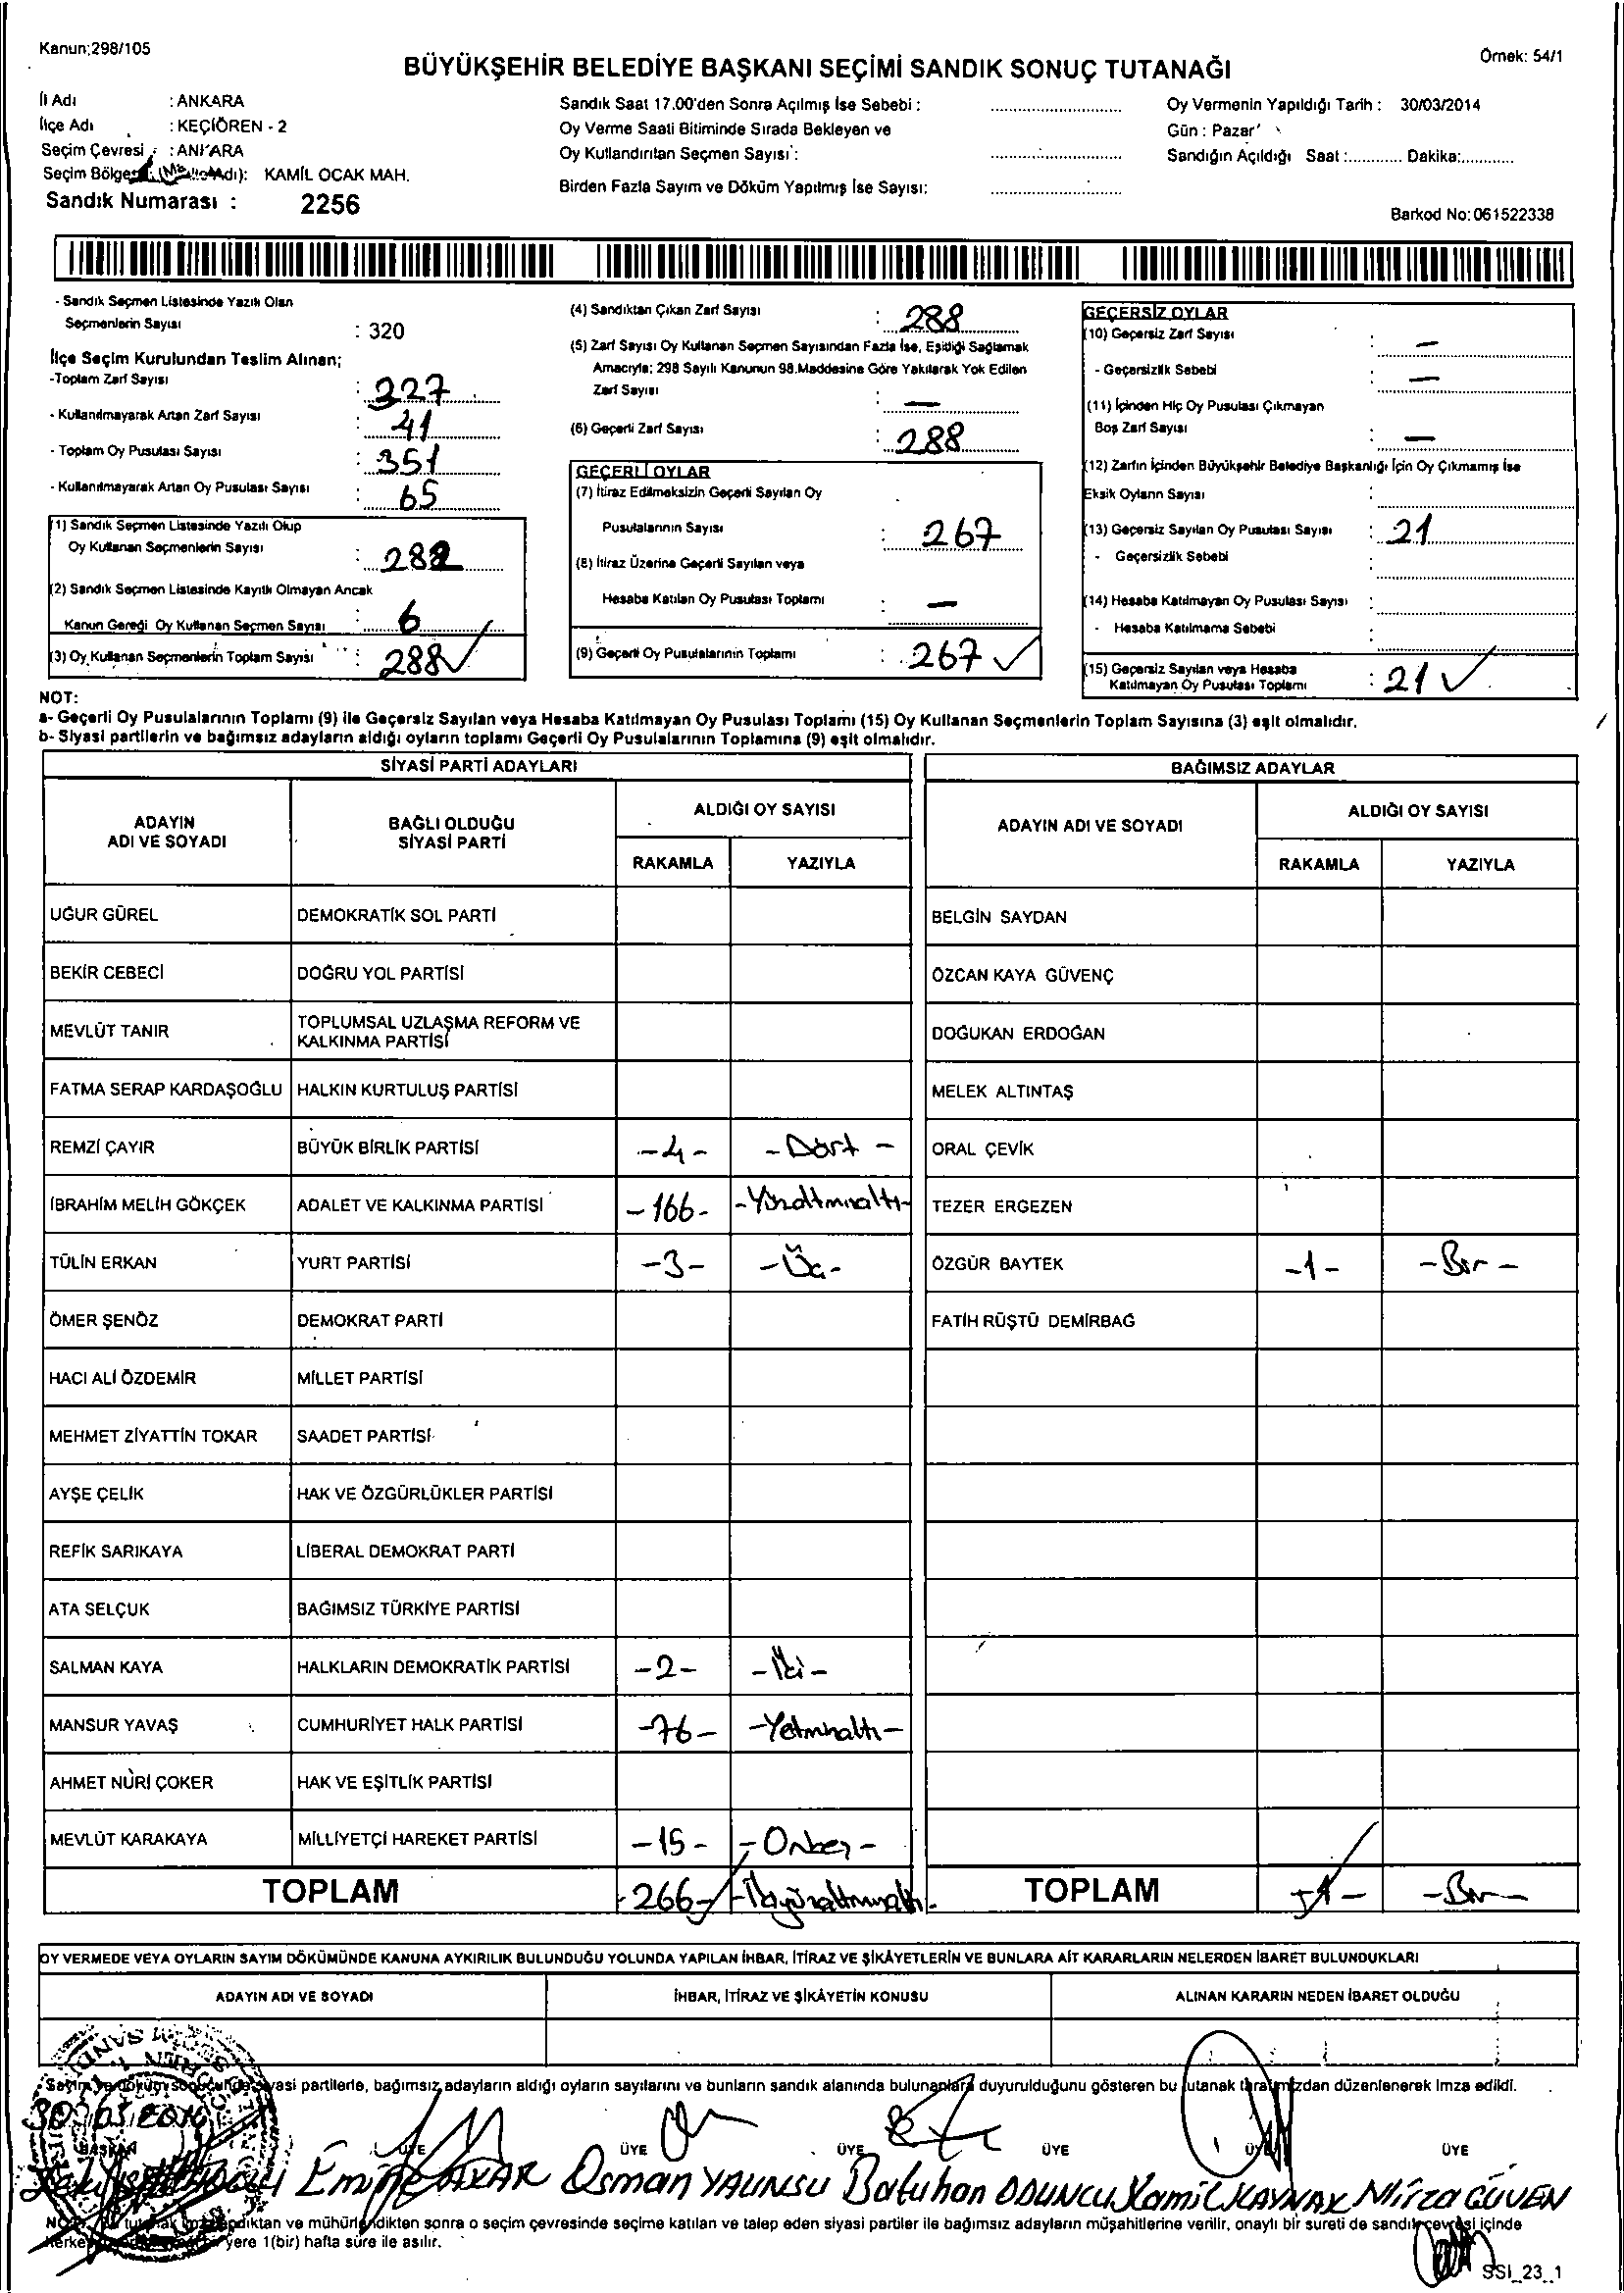 Kanun:298/105
Örnek: 54/1
BÜYÜKŞEHİR BELEDİYE BAŞKANI SEÇİMİ SANDIK SONUÇ TUTANAĞI
İl Adı : ANKARA
İlçe Adı : KEÇİÖREN - 2
Seçim Çevresi : ANKARA
Seçim Bölgesi KAMİL OCAK MAH.
Sandık Numarası : 2256
Sandık Saat 17.00'den Sonra Açılmış İse Sebebi :
Oy Verme Saati Bitiminde Sırada Bekleyen ve
Oy Kullandırılan Seçmen Sayısı :
Birden Fazla Sayım ve Döküm Yapılmış İse Sayısı:
Oy Vermenin Yapıldığı Tarih : 30/03/2014
Gün : Pazar
Sandığın Açıldığı Saat :............ Dakika:............
Barkod No: 061522338
- Sandık Seçmen Listesinde Yazılı Olan
Seçmenlerin Sayısı : 320
İlçe Seçim Kurulundan Teslim Alınan;
-Toplam Zarf Sayısı : 327
- Kullanılmayarak Artan Zarf Sayısı : 41
- Toplam Oy Pusulası Sayısı : 351
- Kullanılmayarak Artan Oy Pusulası Sayısı : 65
(1) Sandık Seçmen Listesinde Yazılı Olup
Oy Kullanan Seçmenlerin Sayısı : 282
(2) Sandık Seçmen Listesinde Kayıtlı Olmayan Ancak
Kanun Gereği Oy Kullanan Seçmen Sayısı : 6
(3) Oy Kullanan Seçmenlerin Toplam Sayısı : 288 ✓
(4) Sandıktan Çıkan Zarf Sayısı : 288
(5) Zarf Sayısı Oy Kullanan Seçmen Sayısından Fazla İse, Eşitliği Sağlamak
Amacıyla; 298 Sayılı Kanunun 98.Maddesine Göre Yakılarak Yok Edilen
Zarf Sayısı : —
(6) Geçerli Zarf Sayısı : 288
GEÇERLİ OYLAR
(7) İtiraz Edilmeksizin Geçerli Sayılan Oy
Pusulalarının Sayısı : 267
(8) İtiraz Üzerine Geçerli Sayılan veya
Hesaba Katılan Oy Pusulası Toplamı : —
(9) Geçerli Oy Pusulalarının Toplamı : 267 ✓
GEÇERSİZ OYLAR
(10) Geçersiz Zarf Sayısı : —
- Geçersizlik Sebebi : —
(11) İçinden Hiç Oy Pusulası Çıkmayan
Boş Zarf Sayısı : —
(12) Zarfın İçinden Büyükşehir Belediye Başkanlığı İçin Oy Çıkmamış İse
Eksik Oyların Sayısı :
(13) Geçersiz Sayılan Oy Pusulası Sayısı : 21
- Geçersizlik Sebebi :
(14) Hesaba Katılmayan Oy Pusulası Sayısı :
- Hesaba Katılmama Sebebi :
(15) Geçersiz Sayılan veya Hesaba
Katılmayan Oy Pusulası Toplamı : 21 ✓
NOT:
a- Geçerli Oy Pusulalarının Toplamı (9) ile Geçersiz Sayılan veya Hesaba Katılmayan Oy Pusulası Toplamı (15) Oy Kullanan Seçmenlerin Toplam Sayısına (3) eşit olmalıdır.
b- Siyasi partilerin ve bağımsız adayların aldığı oyların toplamı Geçerli Oy Pusulalarının Toplamına (9) eşit olmalıdır.
SİYASİ PARTİ ADAYLARI
ADAYIN ADI VE SOYADI
BAĞLI OLDUĞU SİYASİ PARTİ
ALDIĞI OY SAYISI
RAKAMLA YAZIYLA
UĞUR GÜREL DEMOKRATİK SOL PARTİ
BEKİR CEBECİ DOĞRU YOL PARTİSİ
MEVLÜT TANIR TOPLUMSAL UZLAŞMA REFORM VE
KALKINMA PARTİSİ
FATMA SERAP KARDAŞOĞLU HALKIN KURTULUŞ PARTİSİ
REMZİ ÇAYIR BÜYÜK BİRLİK PARTİSİ -4- -Dört-
İBRAHİM MELİH GÖKÇEK ADALET VE KALKINMA PARTİSİ -166- -Yüzaltmışaltı-
TÜLİN ERKAN YURT PARTİSİ -3- -Üç-
ÖMER ŞENÖZ DEMOKRAT PARTİ
HACI ALİ ÖZDEMİR MİLLET PARTİSİ
MEHMET ZİYATTİN TOKAR SAADET PARTİSİ
AYŞE ÇELİK HAK VE ÖZGÜRLÜKLER PARTİSİ
REFİK SARIKAYA LİBERAL DEMOKRAT PARTİ
ATA SELÇUK BAĞIMSIZ TÜRKİYE PARTİSİ
SALMAN KAYA HALKLARIN DEMOKRATİK PARTİSİ -2- -İki-
MANSUR YAVAŞ CUMHURİYET HALK PARTİSİ -76- -Yetmişaltı-
AHMET NURİ ÇOKER HAK VE EŞİTLİK PARTİSİ
MEVLÜT KARAKAYA MİLLİYETÇİ HAREKET PARTİSİ -15- -Onbeş-
TOPLAM -266- -İkiyüzaltmışaltı-
BAĞIMSIZ ADAYLAR
ADAYIN ADI VE SOYADI
ALDIĞI OY SAYISI
RAKAMLA YAZIYLA
BELGİN SAYDAN
ÖZCAN KAYA GÜVENÇ
DOĞUKAN ERDOĞAN
MELEK ALTINTAŞ
ORAL ÇEVİK
TEZER ERGEZEN
ÖZGÜR BAYTEK -1- -Bir-
FATİH RÜŞTÜ DEMİRBAĞ
TOPLAM -1- -Bir-
OY VERMEDE VEYA OYLARIN SAYIM DÖKÜMÜNDE KANUNA AYKIRILIK BULUNDUĞU YOLUNDA YAPILAN İHBAR, İTİRAZ VE ŞİKÂYETLERİN VE BUNLARA AİT KARARLARIN NELERDEN İBARET BULUNDUKLARI
ADAYIN ADI VE SOYADI İHBAR, İTİRAZ VE ŞİKÂYETİN KONUSU ALINAN KARARIN NEDEN İBARET OLDUĞU
Sayım ve döküm sonucunda siyasi partilerle, bağımsız adayların aldığı oyların sayılarını ve bunların sandık alanında bulunanlara duyurulduğunu gösteren bu tutanak tarafımızdan düzenlenerek imza edildi.
30.03.2014
BAŞKAN ÜYE ÜYE ÜYE ÜYE ÜYE ÜYE
Emine Osman YALINSU Batuhan ODUNCU Kamil KAYNAK Mirza GÜVEN
ve mühürlendikten sonra o seçim çevresinde seçime katılan ve talep eden siyasi partiler ile bağımsız adayların müşahitlerine verilir, onaylı bir sureti de sandık çevresi içinde
bir yere 1(bir) hafta süre ile asılır.
SSI_23_1